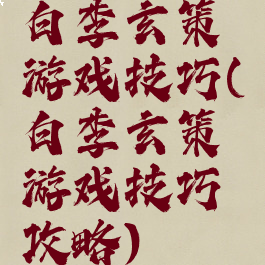 百李玄策
游戏技巧(
百李玄策
游戏技巧
攻略)